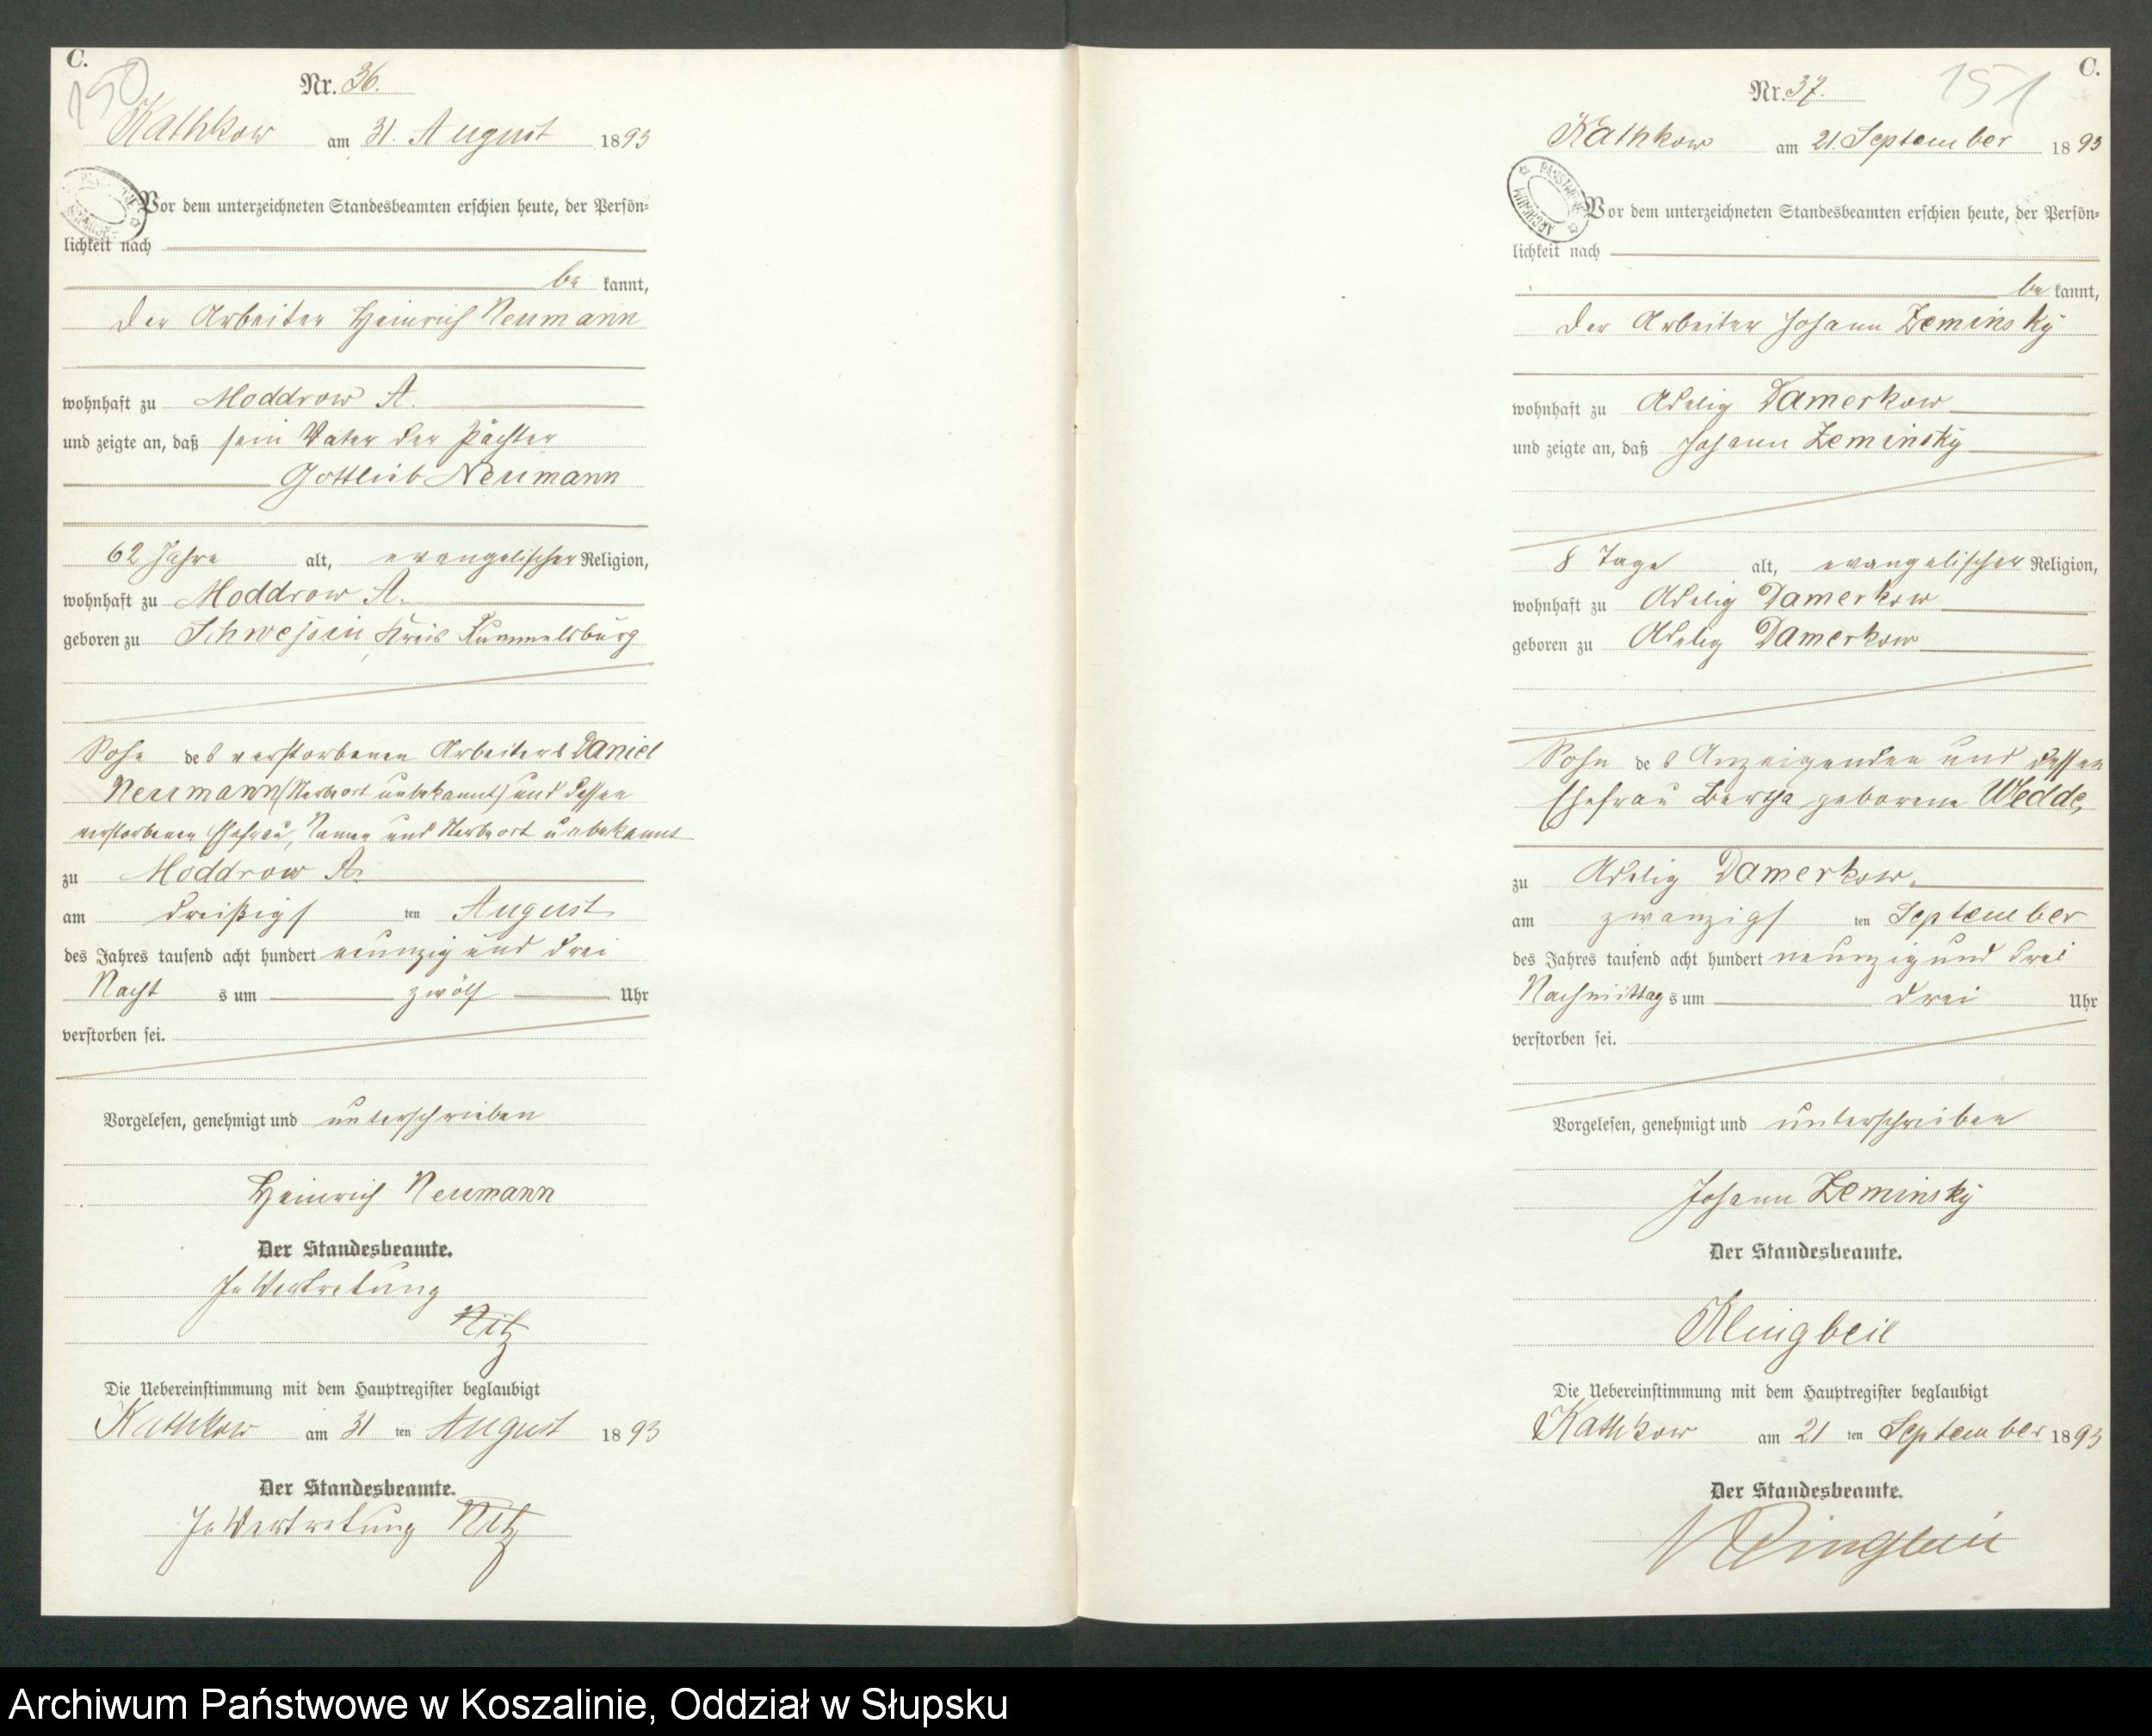 C.
150
Nr. 36.
Kathkow am 31. August 1893
Vor dem unterzeichneten Standesbeamten erschien heute, der Persön-
lichkeit nach
be kannt,
der Arbeiter Heinrich Neumann
wohnhaft zu Moddrow A.
und zeigte an, daß sein Vater der Pächter
Gottlieb Neumann
62 Jahre alt, evangelischer Religion,
wohnhaft zu Moddrow A.
geboren zu Schwessin Kreis Rummelsburg
Sohn des verstorbenen Arbeiters Daniel
Neumann (Sterbeort unbekannt) und dessen
verstorbenen Ehefrau, Namen und Sterbeort unbekannt
zu Moddrow A.
am dreißigs ten August
des Jahres tausend acht hundert neunzig und drei
Nacht s um zwölf Uhr
verstorben sei.
Vorgelesen, genehmigt und unterschrieben
Heinrich Neumann
Der Standesbeamte.
In Vertretung
Nitz
Die Uebereinstimmung mit dem Hauptregister beglaubigt
Kathkow am 31 ten August 1893
Der Standesbeamte.
In Vertretung Nitz
C.
151
Nr. 37.
Kathkow am 21. September 1893
PAŃSTWOWE ARCHIWUM
Vor dem unterzeichneten Standesbeamten erschien heute, der Persön-
lichkeit nach
be kannt,
der Arbeiter Johann Zeminsky
wohnhaft zu Adelig Damerkow
und zeigte an, daß Johann Zeminsky
8 Tage alt, evangelischer Religion,
wohnhaft zu Adelig Damerkow
geboren zu Adelig Damerkow
Sohn des Anzeigenden und dessen
Ehefrau Bertha geborene Wedde,
zu Adelig Damerkow
am zwanzigs ten September
des Jahres tausend acht hundert neunzig und drei
Nachmittag s um drei Uhr
verstorben sei.
Vorgelesen, genehmigt und unterschrieben
Johann Zeminsky
Der Standesbeamte.
Klingbeil
Die Uebereinstimmung mit dem Hauptregister beglaubigt
Kathkow am 21 ten September 1893
Der Standesbeamte.
Klingbeil
Archiwum Państwowe w Koszalinie, Oddział w Słupsku